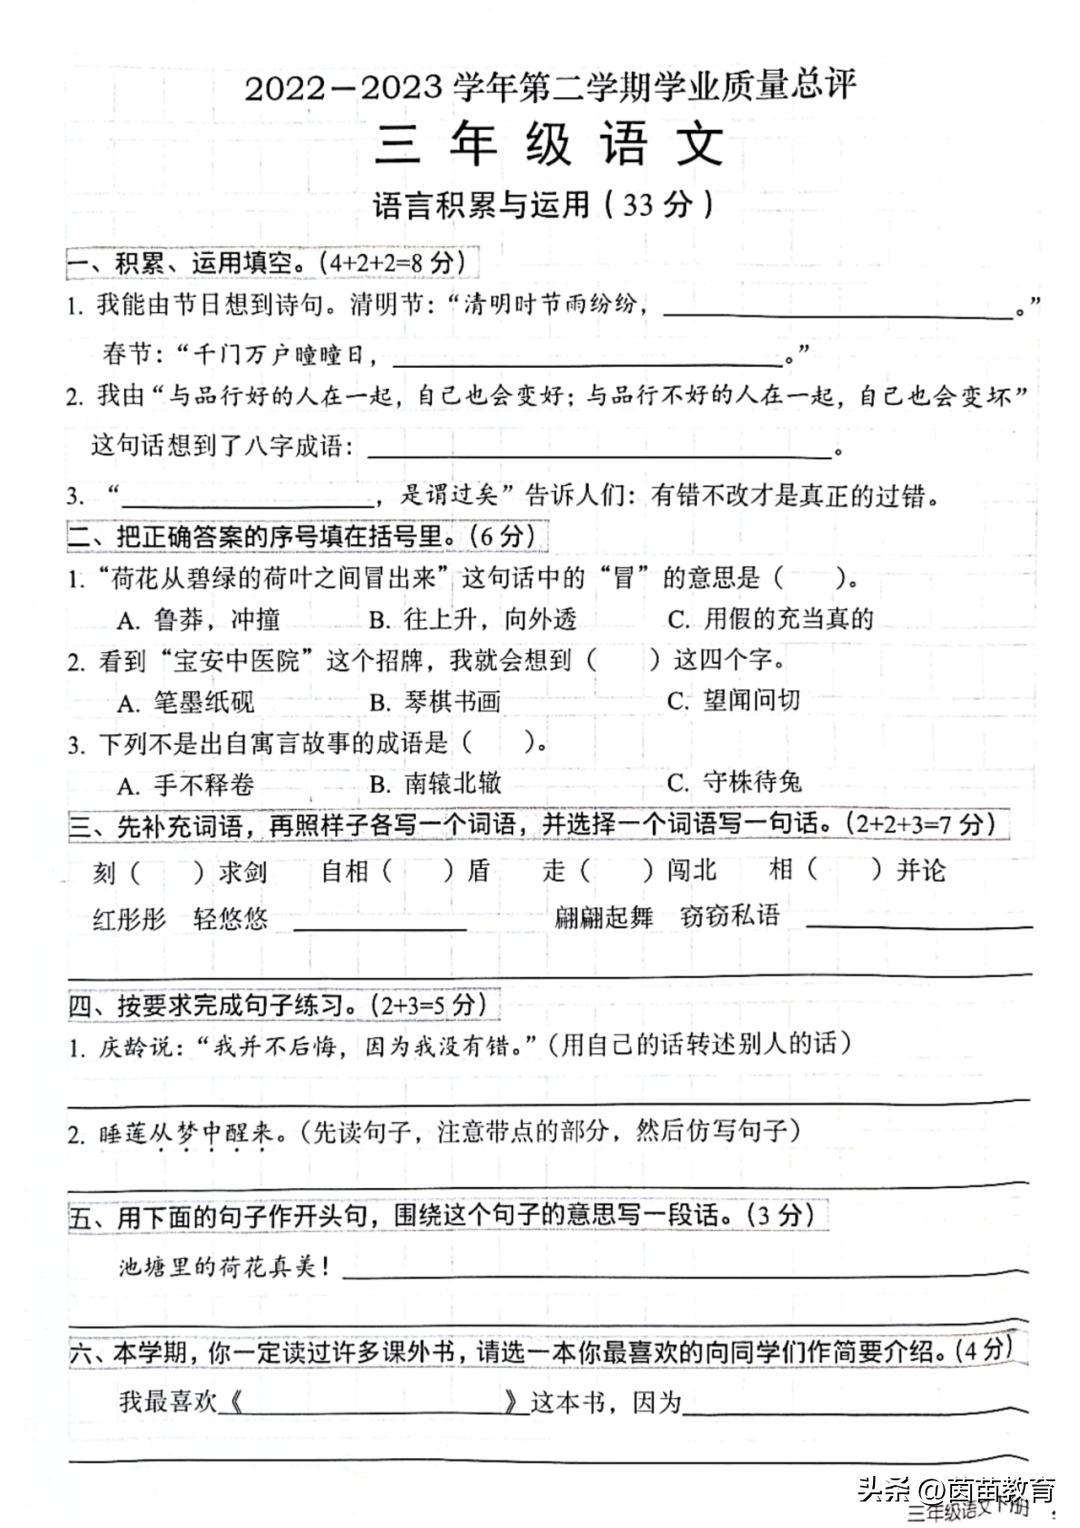 2022－2023 学年第二学期学业质量总评
三 年 级 语 文
语言积累与运用（33 分）
一、积累、运用填空。（4+2+2=8 分）
1. 我能由节日想到诗句。清明节：“清明时节雨纷纷，＿＿＿＿＿＿＿＿。”
春节：“千门万户曈曈日，＿＿＿＿＿＿＿＿。”
2. 我由“与品行好的人在一起，自己也会变好；与品行不好的人在一起，自己也会变坏”
这句话想到了八字成语：＿＿＿＿＿＿＿＿。
3. “＿＿＿＿＿＿，是谓过矣”告诉人们：有错不改才是真正的过错。
二、把正确答案的序号填在括号里。（6 分）
1.“荷花从碧绿的荷叶之间冒出来”这句话中的“冒”的意思是（　　）。
A. 鲁莽，冲撞　　B. 往上升，向外透　　C. 用假的充当真的
2. 看到“宝安中医院”这个招牌，我就会想到（　　）这四个字。
A. 笔墨纸砚　　B. 琴棋书画　　C. 望闻问切
3. 下列不是出自寓言故事的成语是（　　）。
A. 手不释卷　　B. 南辕北辙　　C. 守株待兔
三、先补充词语，再照样子各写一个词语，并选择一个词语写一句话。（2+2+3=7 分）
刻（　　）求剑　　自相（　　）盾　　走（　　）闯北　　相（　　）并论
红彤彤　轻悠悠　＿＿＿＿＿＿　　翩翩起舞　窃窃私语　＿＿＿＿＿＿
四、按要求完成句子练习。（2+3=5 分）
1. 庆龄说：“我并不后悔，因为我没有错。”（用自己的话转述别人的话）
2. 睡莲从梦中醒来。（先读句子，注意带点的部分，然后仿写句子）
五、用下面的句子作开头句，围绕这个句子的意思写一段话。（3 分）
池塘里的荷花真美！＿＿＿＿＿＿＿＿
六、本学期，你一定读过许多课外书，请选一本你最喜欢的向同学们作简要介绍。（4 分）
我最喜欢《＿＿＿＿＿＿》这本书，因为＿＿＿＿＿＿＿＿
头条 @茵苗教育
三年级语文下册